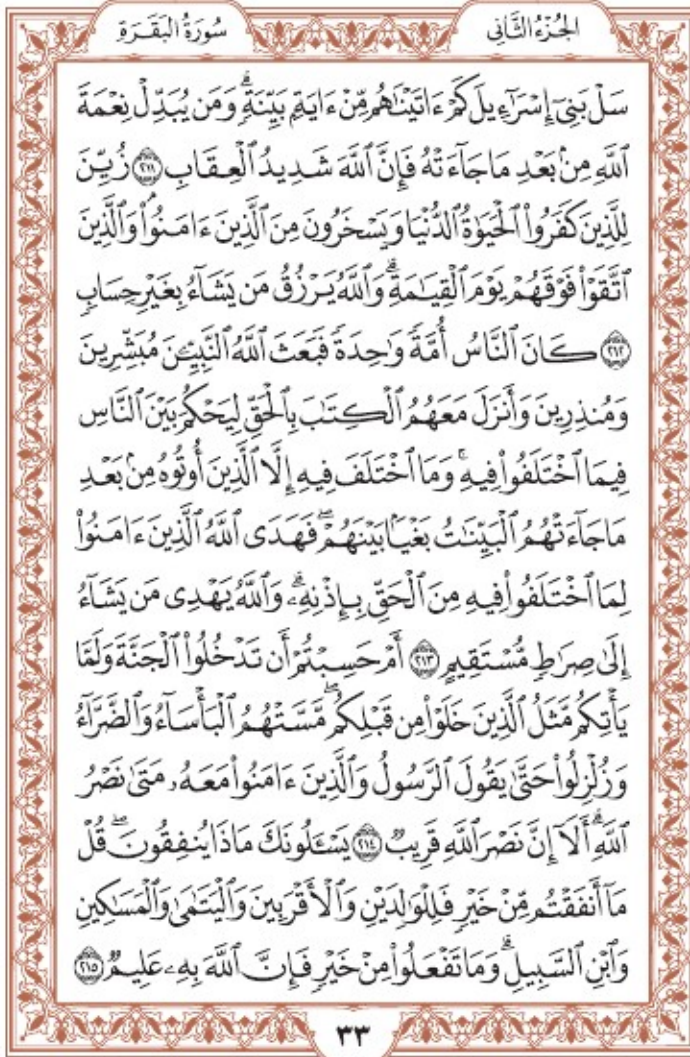 سُورَةُ الْبَقَرَةِ
الجُزْءُ الثَّانِي
سَلْ بَنِىٓ إِسْرَٰٓءِيلَ كَمْ ءَاتَيْنَٰهُم مِّنْ ءَايَةٍۭ بَيِّنَةٍۗ وَمَن يُبَدِّلْ نِعْمَةَ
ٱللَّهِ مِنۢ بَعْدِ مَا جَآءَتْهُ فَإِنَّ ٱللَّهَ شَدِيدُ ٱلْعِقَابِ ٢١١ زُيِّنَ
لِلَّذِينَ كَفَرُوا۟ ٱلْحَيَوٰةُ ٱلدُّنْيَا وَيَسْخَرُونَ مِنَ ٱلَّذِينَ ءَامَنُوا۟ۘ وَٱلَّذِينَ
ٱتَّقَوْا۟ فَوْقَهُمْ يَوْمَ ٱلْقِيَٰمَةِۗ وَٱللَّهُ يَرْزُقُ مَن يَشَآءُ بِغَيْرِ حِسَابٍ
٢١٢ كَانَ ٱلنَّاسُ أُمَّةً وَٰحِدَةً فَبَعَثَ ٱللَّهُ ٱلنَّبِيِّۦنَ مُبَشِّرِينَ
وَمُنذِرِينَ وَأَنزَلَ مَعَهُمُ ٱلْكِتَٰبَ بِٱلْحَقِّ لِيَحْكُمَ بَيْنَ ٱلنَّاسِ
فِيمَا ٱخْتَلَفُوا۟ فِيهِۚ وَمَا ٱخْتَلَفَ فِيهِ إِلَّا ٱلَّذِينَ أُوتُوهُ مِنۢ بَعْدِ
مَا جَآءَتْهُمُ ٱلْبَيِّنَٰتُ بَغْيًۢا بَيْنَهُمْۖ فَهَدَى ٱللَّهُ ٱلَّذِينَ ءَامَنُوا۟
لِمَا ٱخْتَلَفُوا۟ فِيهِ مِنَ ٱلْحَقِّ بِإِذْنِهِۦۗ وَٱللَّهُ يَهْدِى مَن يَشَآءُ
إِلَىٰ صِرَٰطٍ مُّسْتَقِيمٍ ٢١٣ أَمْ حَسِبْتُمْ أَن تَدْخُلُوا۟ ٱلْجَنَّةَ وَلَمَّا
يَأْتِكُم مَّثَلُ ٱلَّذِينَ خَلَوْا۟ مِن قَبْلِكُمۖ مَّسَّتْهُمُ ٱلْبَأْسَآءُ وَٱلضَّرَّآءُ
وَزُلْزِلُوا۟ حَتَّىٰ يَقُولَ ٱلرَّسُولُ وَٱلَّذِينَ ءَامَنُوا۟ مَعَهُۥ مَتَىٰ نَصْرُ
ٱللَّهِۗ أَلَآ إِنَّ نَصْرَ ٱللَّهِ قَرِيبٌ ٢١٤ يَسْـَٔلُونَكَ مَاذَا يُنفِقُونَۖ قُلْ
مَآ أَنفَقْتُم مِّنْ خَيْرٍ فَلِلْوَٰلِدَيْنِ وَٱلْأَقْرَبِينَ وَٱلْيَتَٰمَىٰ وَٱلْمَسَٰكِينِ
وَٱبْنِ ٱلسَّبِيلِۗ وَمَا تَفْعَلُوا۟ مِنْ خَيْرٍ فَإِنَّ ٱللَّهَ بِهِۦ عَلِيمٌ ٢١٥
٣٣